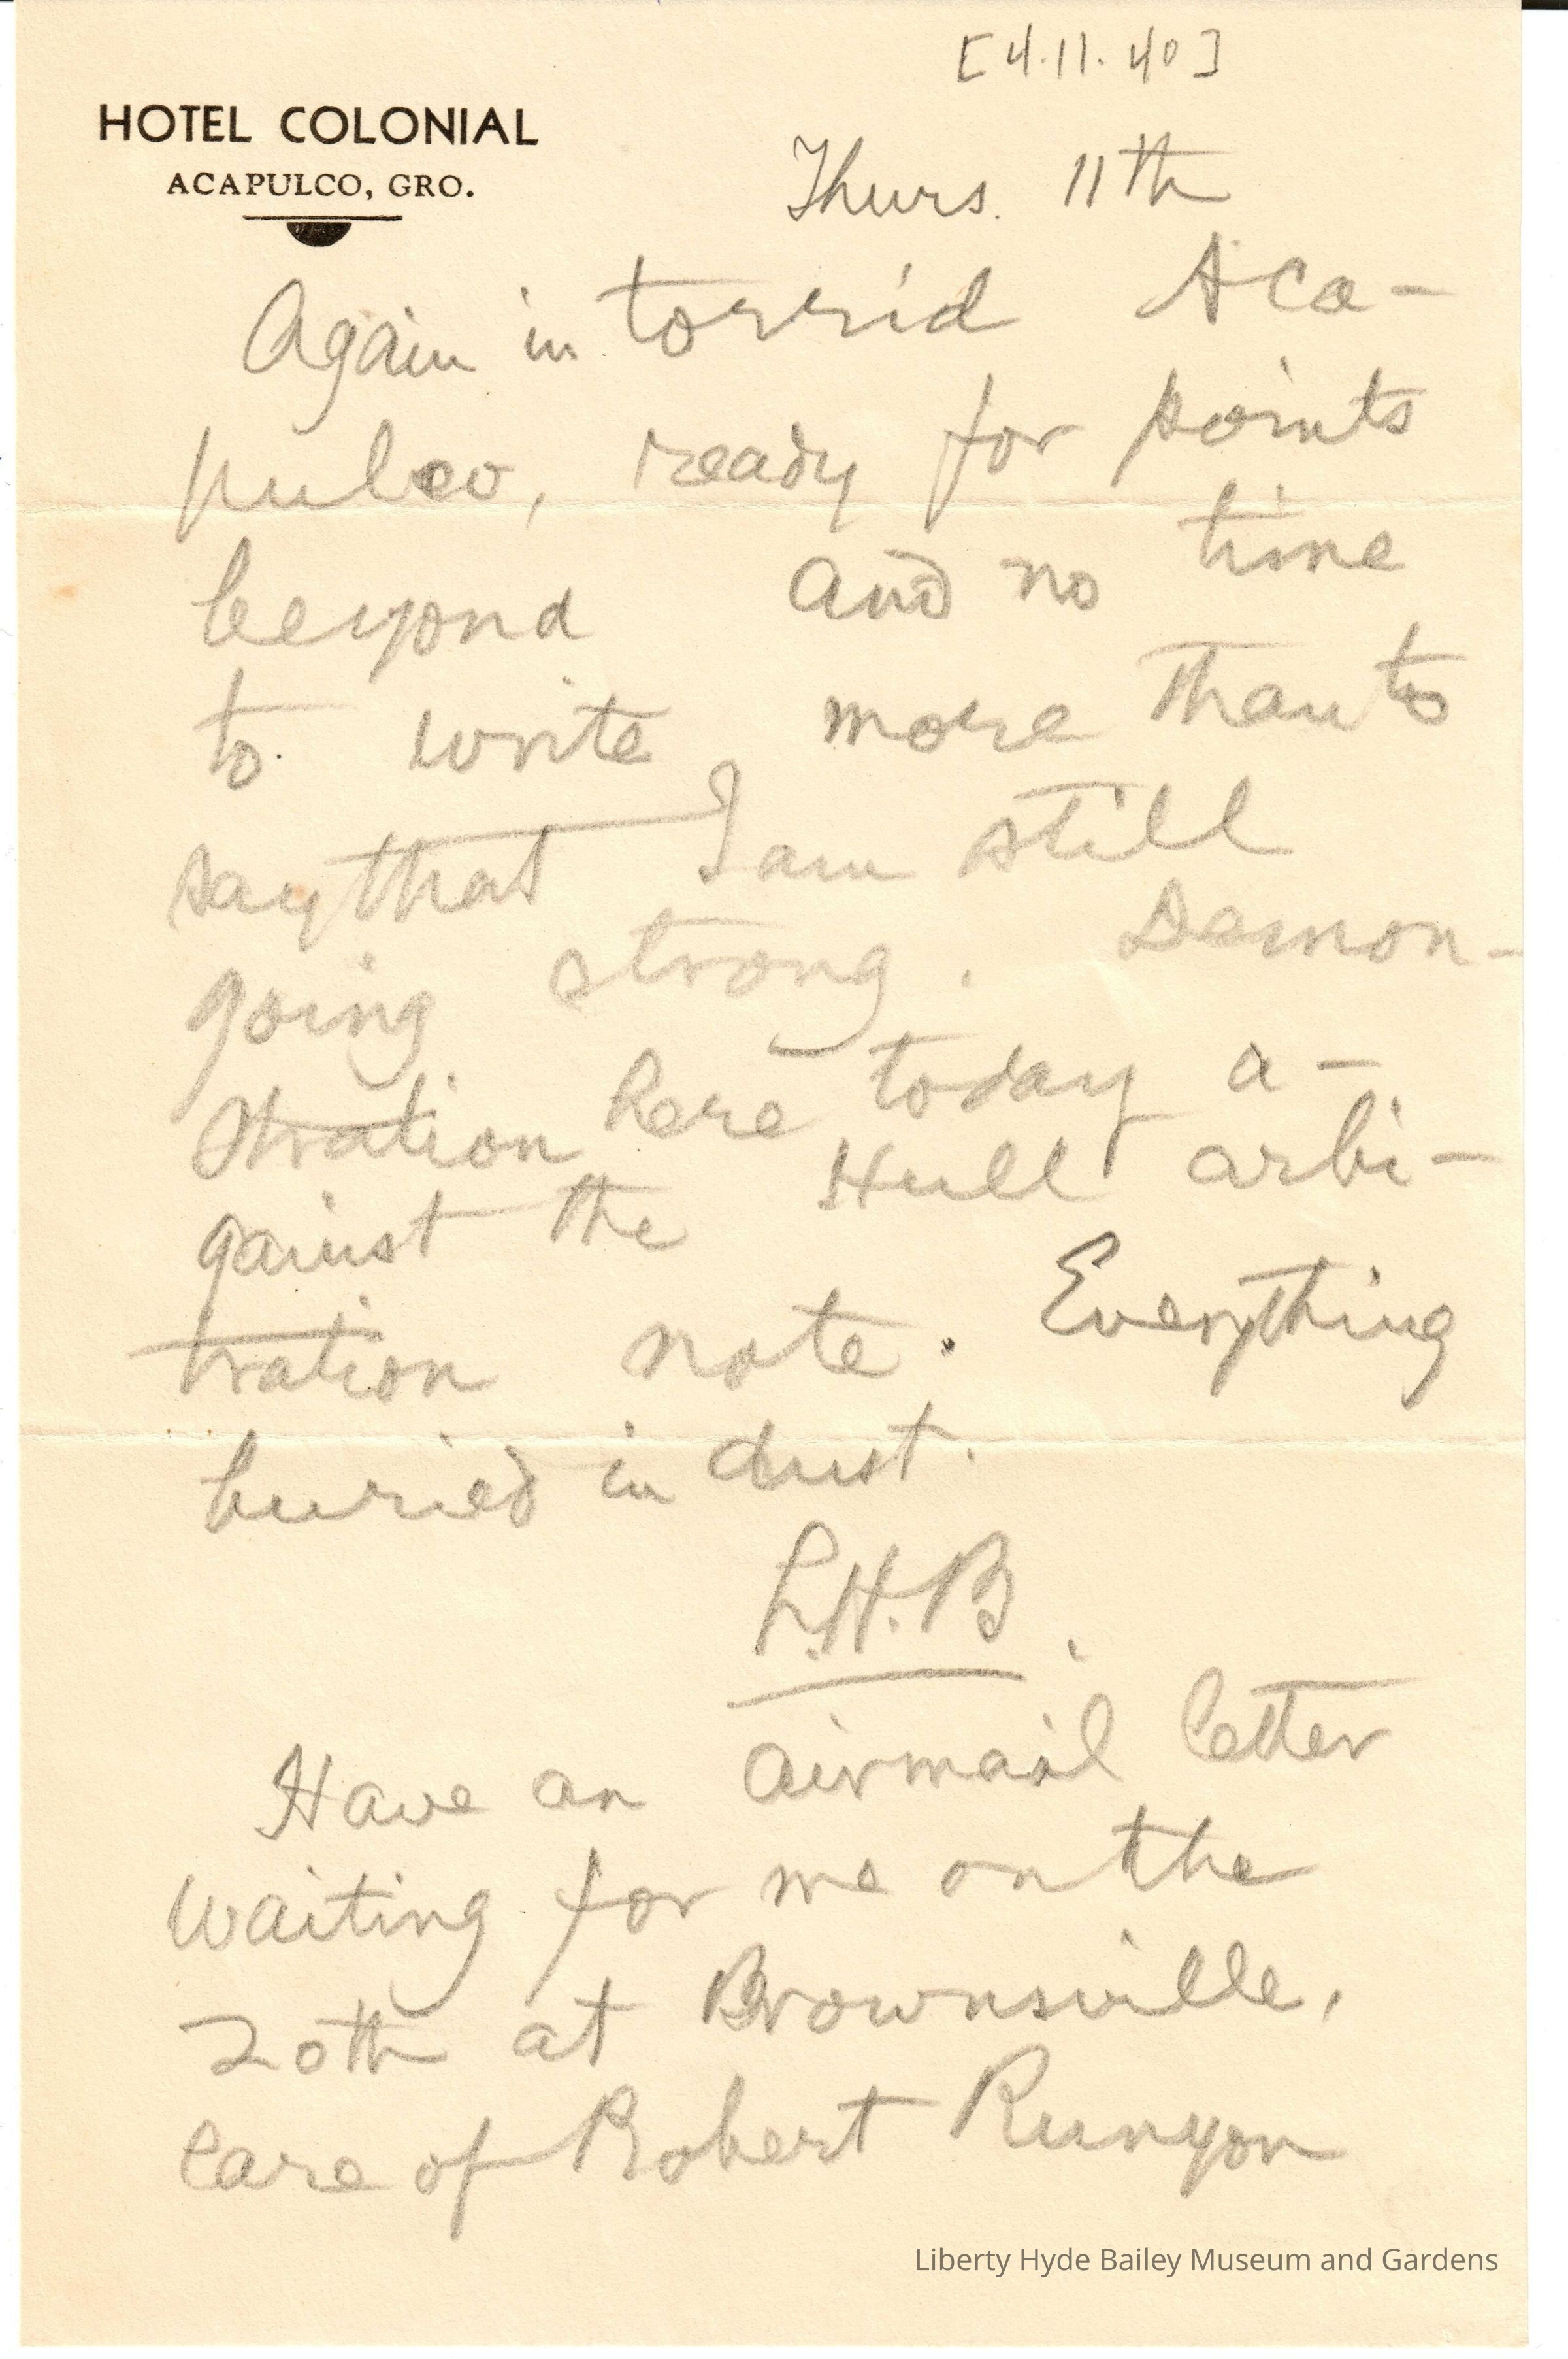 [4.11.40]
HOTEL COLONIAL
ACAPULCO, GRO.
Thurs. 11th
Again in torrid Aca-
pulco, ready for points
beyond and no time
to write more than to
say that I am still
going strong. Demon-
stration here today a-
gainst the Hull arbi-
tration note. Everything
buried in dust.
L.H.B.
Have an airmail letter
waiting for me on the
20th at Brownsville,
care of Robert Runyon
Liberty Hyde Bailey Museum and Gardens